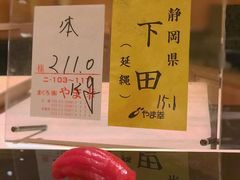 本
211.0
二-103-11
まぐろ㈱ やま幸
静岡県
下田
(延縄)
151
やま幸